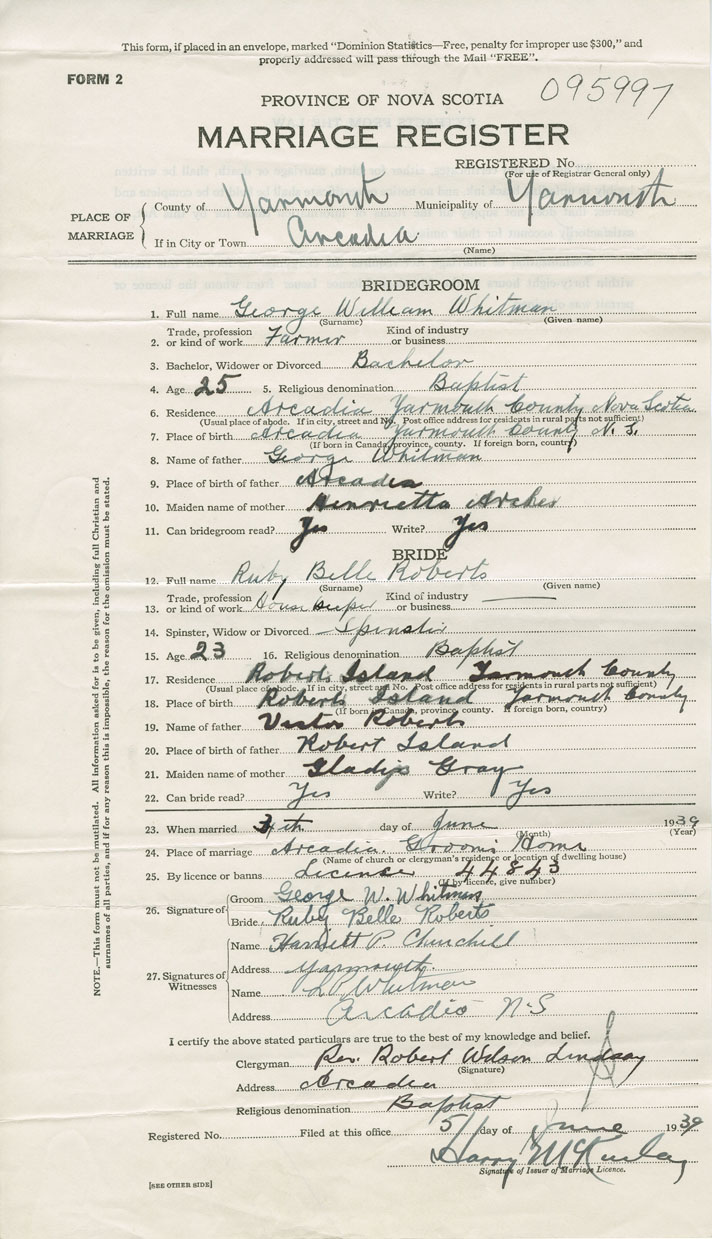 This form, if placed in an envelope, marked "Dominion Statistics—Free, penalty for improper use $300," and
properly addressed will pass through the Mail "FREE".
FORM 2
095997
PROVINCE OF NOVA SCOTIA
MARRIAGE REGISTER
REGISTERED No.
(For use of Registrar General only)
PLACE OF MARRIAGE
County of Yarmouth Municipality of Yarmouth
If in City or Town Arcadia
(Name)
BRIDEGROOM
1. Full name George William Whitman
(Surname) (Given name)
2. Trade, profession or kind of work Farmer Kind of industry or business
3. Bachelor, Widower or Divorced Bachelor
4. Age 25 5. Religious denomination Baptist
6. Residence Arcadia Yarmouth County Nova Scotia
(Usual place of abode. If in city, street and No. Post office address for residents in rural parts not sufficient)
7. Place of birth Arcadia Yarmouth County N.S.
(If born in Canada, province, county. If foreign born, country)
8. Name of father George Whitman
9. Place of birth of father Arcadia
10. Maiden name of mother Henrietta Archer
11. Can bridegroom read? Yes Write? Yes
BRIDE
12. Full name Ruby Belle Roberts
(Surname) (Given name)
13. Trade, profession or kind of work Housekeeper Kind of industry or business
14. Spinster, Widow or Divorced Spinster
15. Age 23 16. Religious denomination Baptist
17. Residence Roberts Island Yarmouth County
(Usual place of abode. If in city, street and No. Post office address for residents in rural parts not sufficient)
18. Place of birth Roberts Island Yarmouth County
(If born in Canada, province, county. If foreign born, country)
19. Name of father Victor Roberts
20. Place of birth of father Robert Island
21. Maiden name of mother Gladys Gray
22. Can bride read? Yes Write? Yes
23. When married 4th day of June 1939
(Month) (Year)
24. Place of marriage Arcadia. Groom's Home
(Name of church or clergyman's residence or location of dwelling house)
25. By licence or banns License 44843
(If by licence, give number)
26. Signature of
Groom George W. Whitman
Bride Ruby Belle Roberts
27. Signatures of Witnesses
Name Harriett P. Churchill
Address Yarmouth.
Name Whitman
Address Arcadia N.S
I certify the above stated particulars are true to the best of my knowledge and belief.
Clergyman Rev. Robert Wilson Lindsay
(Signature)
Address Arcadia
Religious denomination Baptist
Registered No. Filed at this office 5/ day of June 1939
Harry McKinlay
Signature of Issuer of Marriage Licence.
[SEE OTHER SIDE]
NOTE.—This form must not be mutilated. All information asked for is to be given, including full Christian and
surnames of all parties, and if for any reason this is impossible, the reason for the omission must be stated.